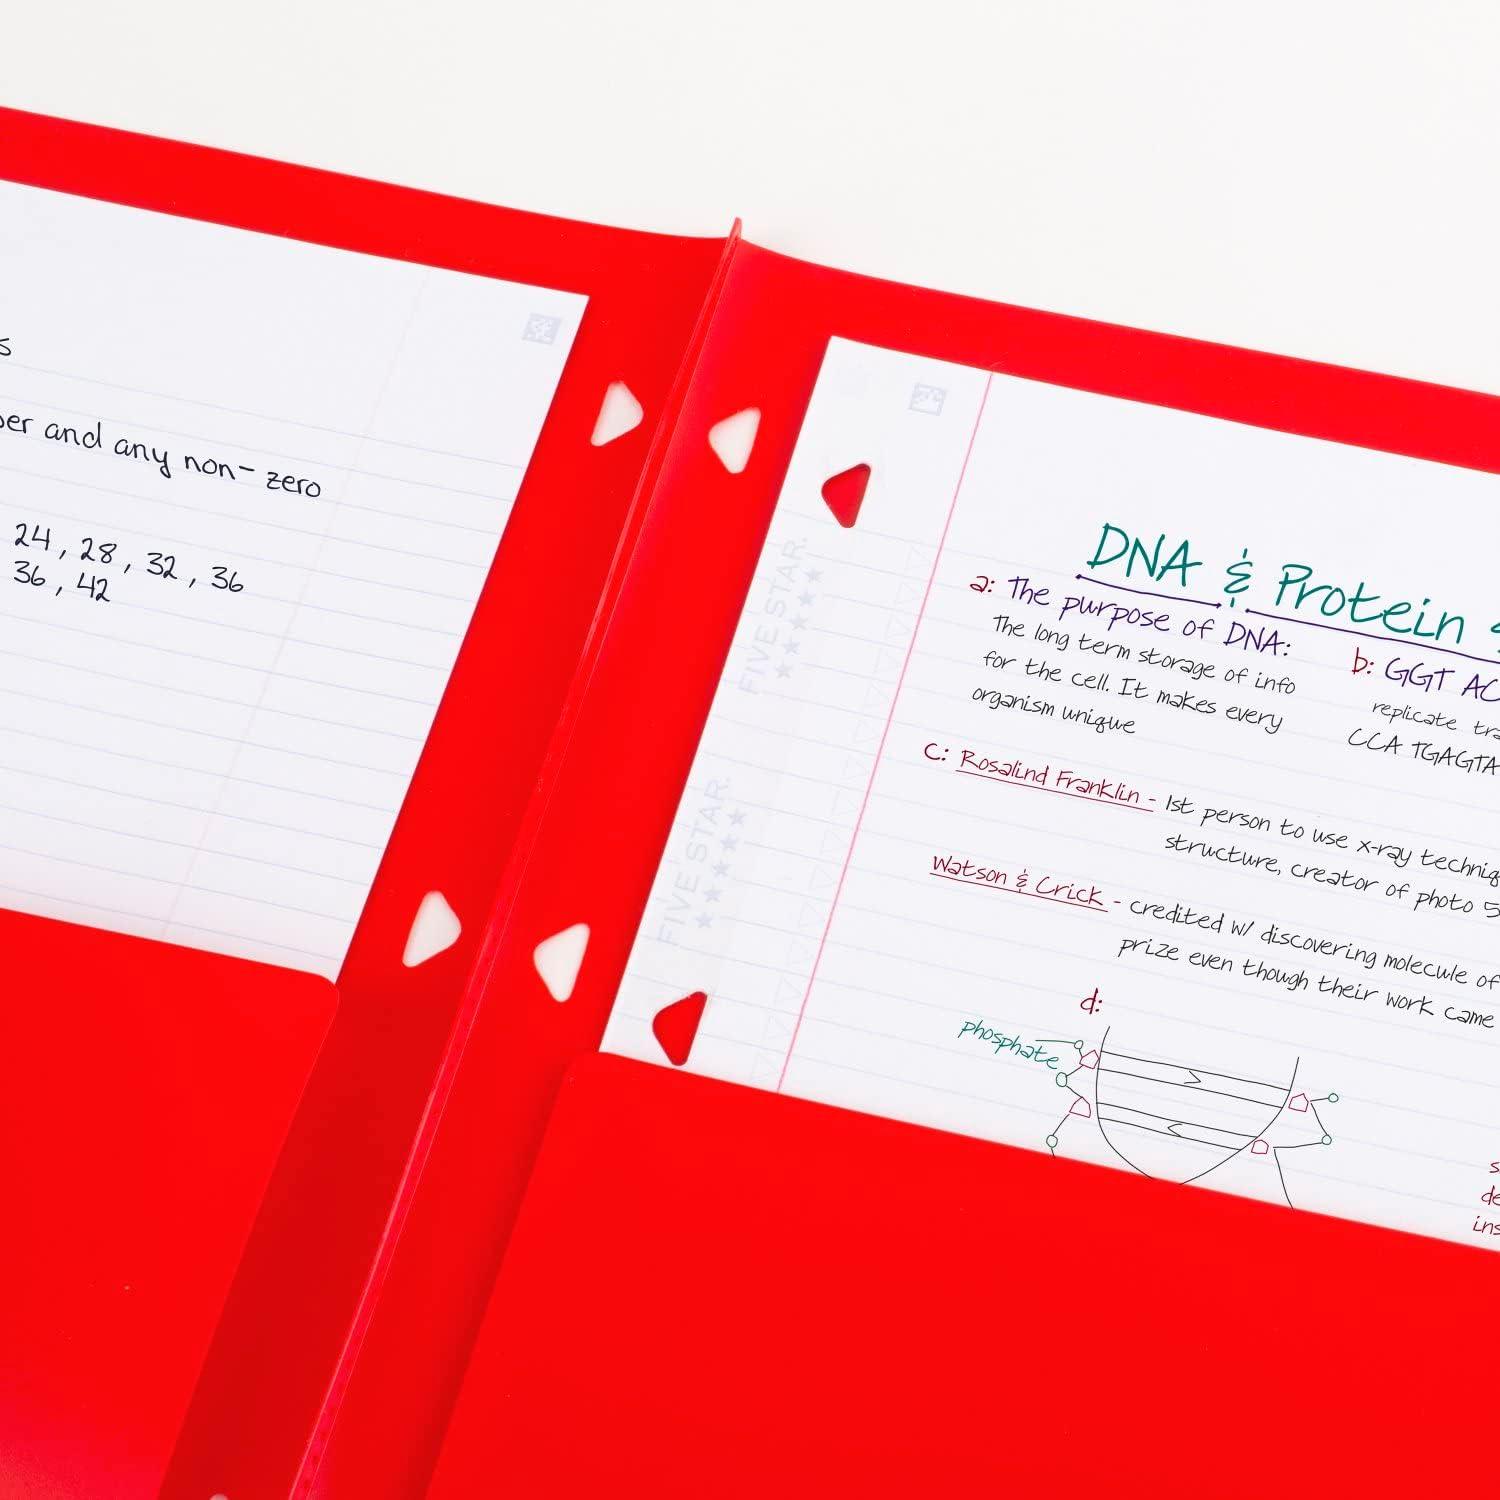 and any non-zero
24, 28, 32, 36
36, 42
FIVE STAR.
FIVE STAR.
DNA & Protein
a: The purpose of DNA:
The long term storage of info
for the cell. It makes every
organism unique
b: GGT AC
replicate
CCA TGAGTA
c: Rosalind Franklin - 1st person to use x-ray
structure, creator of photo 5
Watson & Crick - credited w/ discovering molecule of
prize even though their work came
d:
phosphate